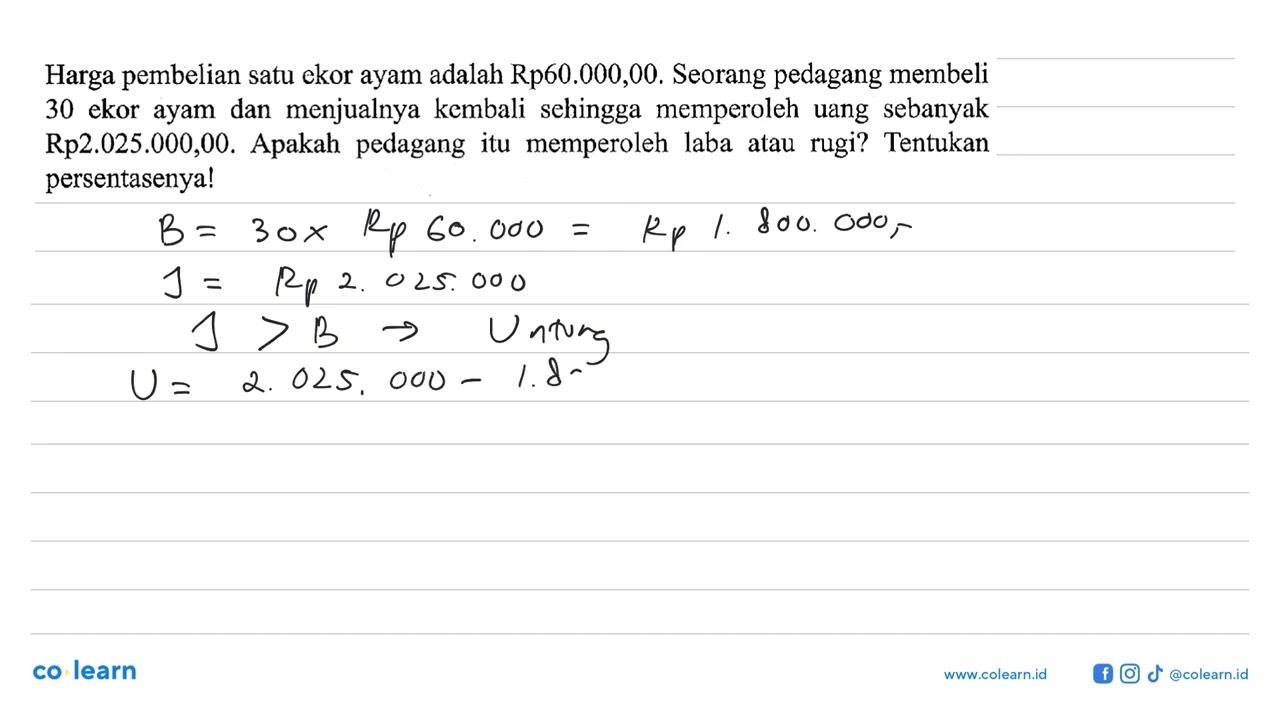 Harga pembelian satu ekor ayam adalah Rp60.000,00. Seorang pedagang membeli
30 ekor ayam dan menjualnya kembali sehingga memperoleh uang sebanyak
Rp2.025.000,00. Apakah pedagang itu memperoleh laba atau rugi? Tentukan
persentasenya!
B = 30 x Rp 60.000 = Rp 1.800.000,-
J = Rp 2.025.000
J > B → Untung
U = 2.025.000 - 1.8
co learn
www.colearn.id @colearn.id